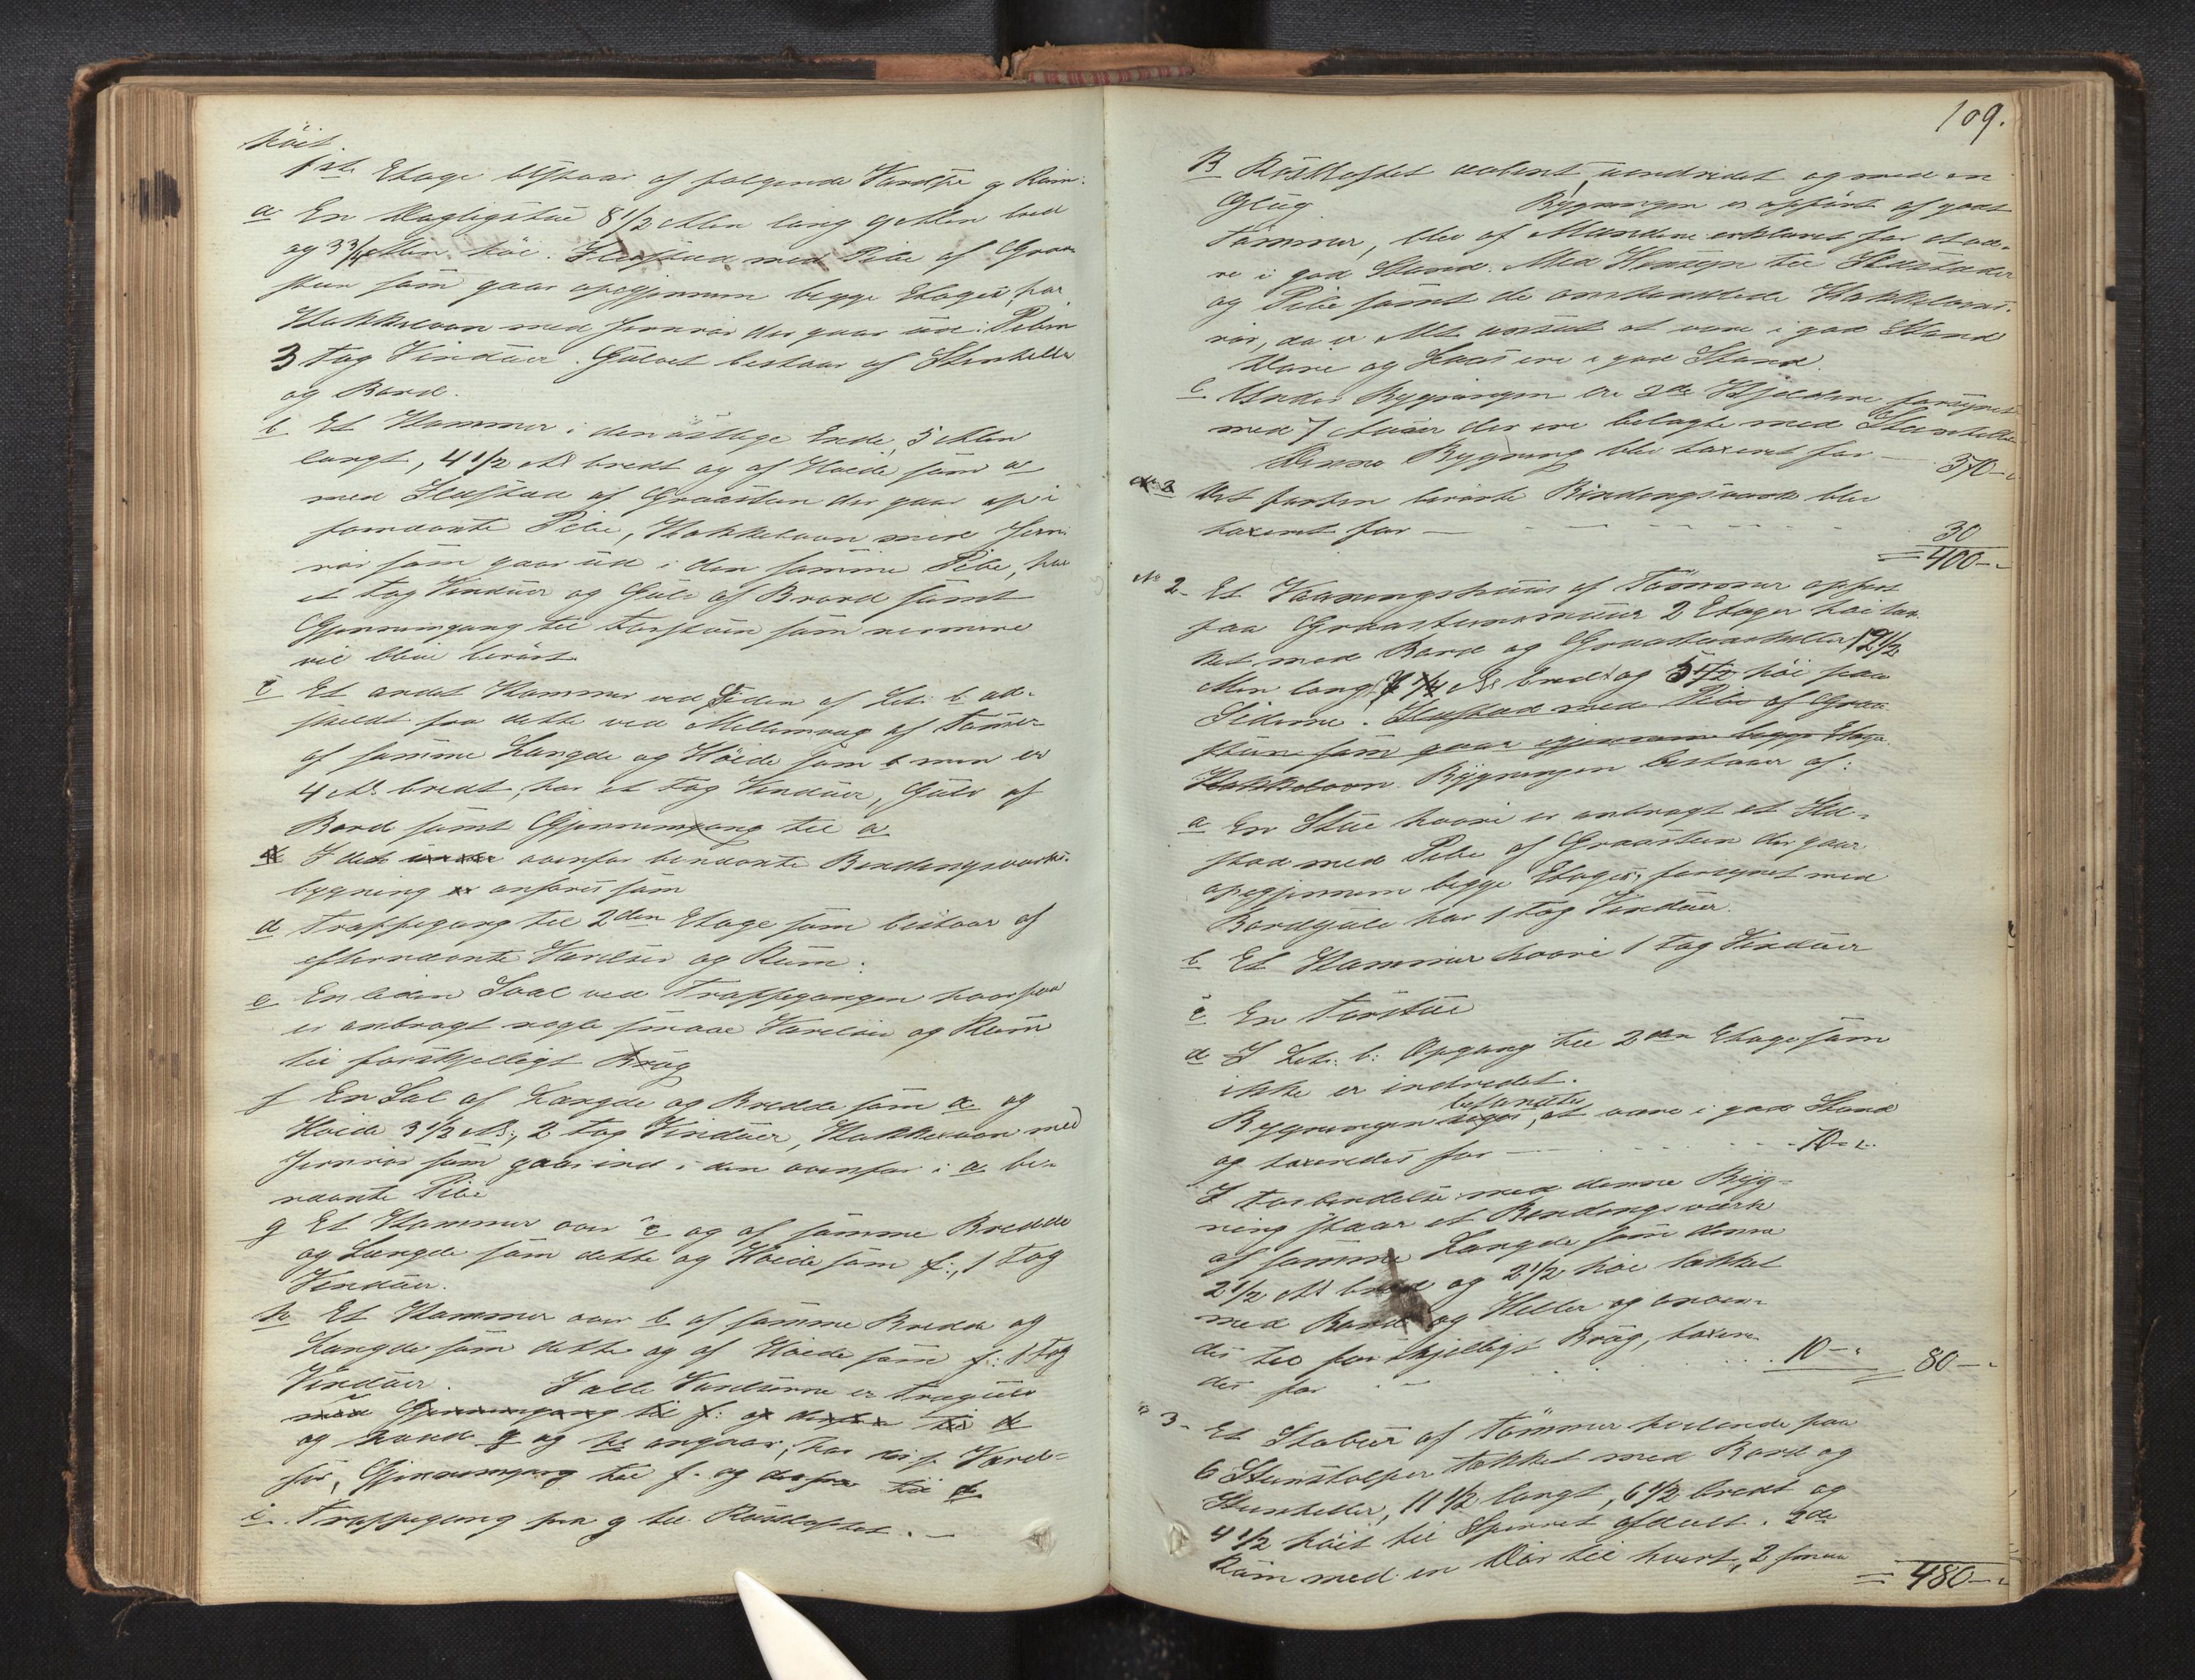 höit.
1ste Etage bestaar af følgende Værelser og Rum:
a En Dagligstue 8 1/2 Alen lang 9 Alen bred
og 3 3/4 Alen høi. Ildsted med Pibe af Graa-
steen som gaar opigjennem begge Etager, har
Kakkelovn med Jernrör der gaar ud i Piben
3 Fag Vinduer. Gulvet bestaar af Steenheller
og Bord.
b Et Kammer i den östlige Ende, 5 Alen
langt, 4 1/2 Al bredt og af Høide som a
med Ildsted af Graasteen der gaar op i
fornævnte Pibe, Kakkelovn med Jern-
rör som gaar ud i den samme Pibe, har
et Fag Vinduer og Gulv af Bord samt
Gjennemgang til Forstuen som nermere
vil blive berört.
c Et andet Kammer ved Siden af Lit: b ad-
skildt fra dette ved Mellemvæg af Tømer
af samme Længde og Höide som b men er
4 Al bredt, har et Fag Vinduer, Gulv af
Bord samt Gjennemgang til a
d I det ovenfor benævnte Bindingsværks-
bygning anføres som
d Trappegang til 2den Etage som bestaar af
efternævnte Værelser og Rum:
e En liden Sval ved Trappegangen hvorpaa
er anbragt nogle smaae Værelser og Rum
til forskjelligt Brug
f En Sal af Længde og Bredde som a og
Høide 3 1/2 Al:, 2 Fag Vinduer, Kakkelovn med
Jernrör som gaar ind i den ovenfor i a be-
nævnte Pibe
g Et Kammer over c og af samme Bredde
og Længde som dette og Høide som f:, 1 Fag
Vinduer.
h Et Kammer over b af samme Bredde og
Længde som dette og af Høide som f: 1 Fag
Vinduer. I alle Værelserne er Trægulv
med Gjennemgang til f: og derfra til d
og hvad g og h angaar, har disse Værel-
ser, Gjennemgang til f. og derfra til d.
i Trappegang fra g til Röstloftet. —
109.
B Röstloftet aabent, uindredet og med en
Glug. Bygningen er opført af godt
Tömmer, blev af Mændene erklæret for at væ-
re i god Stand. Med Hensyn til Ildsteder
og Pibe samt de omhandlede Kakkelovns-
rör, da er Alt anseet at være i god Stand
Döre og Laase ere i god Stand.
C Under Bygningen ere 2de Kjeldere forsynet
med 7 der ere belagte med Steenheller
Denne Bygning blev taxeret for — 370 —
No 2 Det forhen berörte Bindingsværk blev
taxeret for — 30
= 400 —
No 2- Et Vaaningshuus af Tömmer opført
paa Graasteensmuur 2 Etager høi tæk-
ket med Bord og Graasteensheller 12 1/2
Alen lang, 7 1/4 Al bred og 5 1/2 høi paa
Siderne. Ildsted med Pibe af Graa
steen som gaar igjennem begge Etager.
Kakkelovn. Bygningen bestaar af:
a En Stue hvori er anbragt et Ild-
sted med Pibe af Graasteen der gaar
opigjennem begge Etager, forsynet med
Bordgulv har 1 Fag Vinduer.
b Et Kammer hvori 1 Fag Vinduer
c En Forstue
d I Lit: b: Opgang til 2den Etage som
ikke er indredet.
befandtes
Bygningen siges, at være i god Stand
og taxeredes for — 70 —
I Forbindelse med denne Byg-
ning staar et Bindingsværk
af samme Længde som denne
2 1/2 Al bred og 2 1/2 høi tækket
med Bord og Heller og anven-
des til forskjelligt Brug, taxere-
des for — 10 — = 80 —
" 3- Et Stabur af Tömmer hvilende paa
6 Steenstolper tækket med Bord og
Steenheller, 11 1/2 langt, 6 1/2 bredt og
4 1/2 höit til Sperret afdeelt. 2de
Rum med en Dör til hvert, 2 smaa
= 480 —